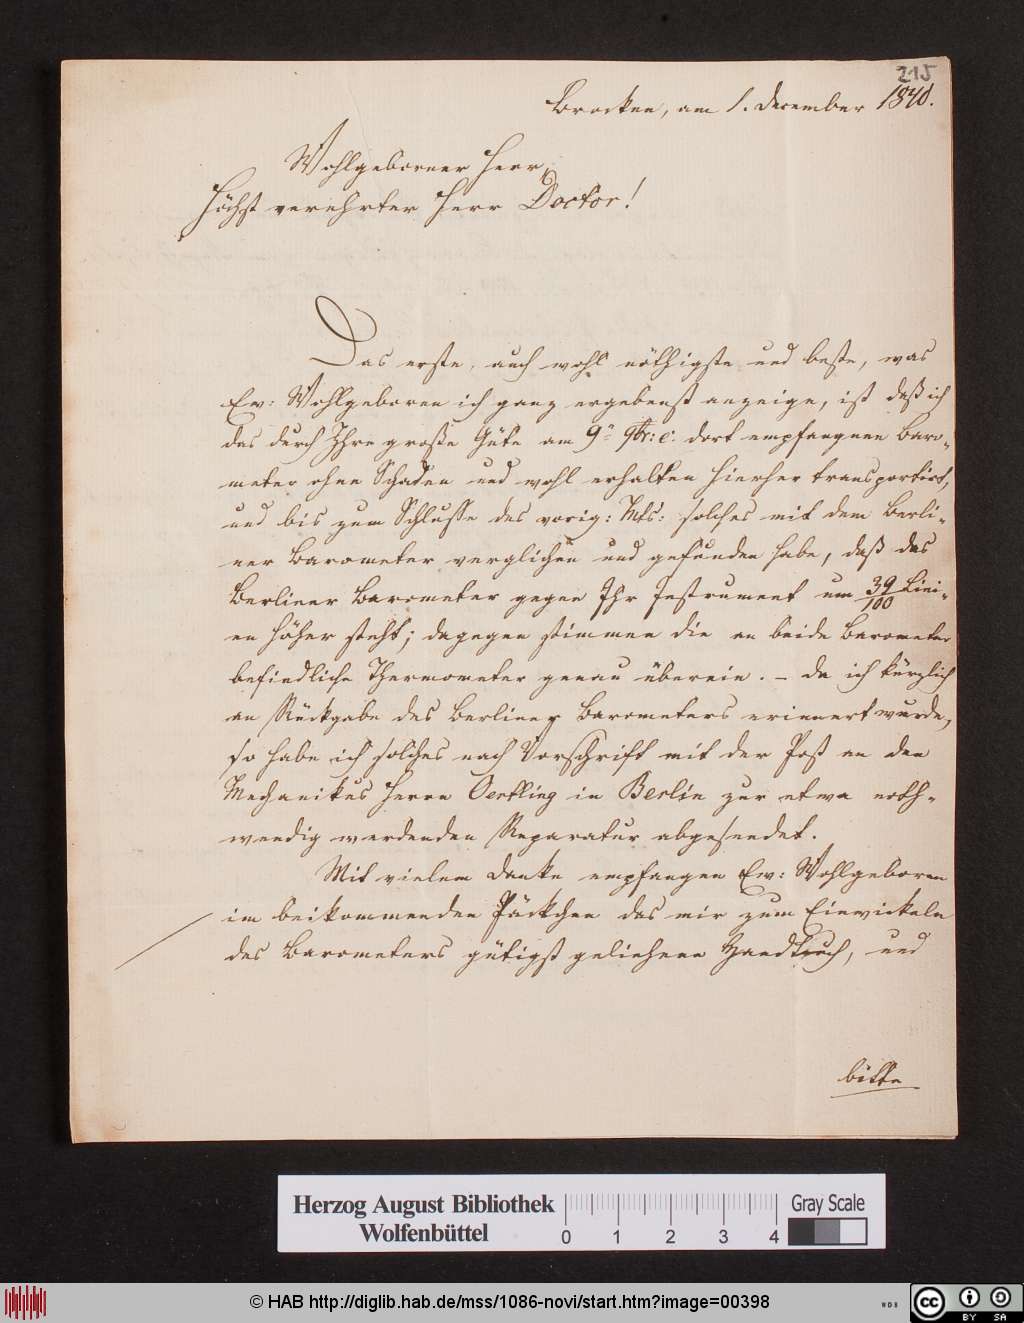 215
Brocken, am 1. December 1840.
Wohlgeborner Herr,
Höchst verehrter Herr Doctor!
Das erste, auch wohl nöthigste und beste, was
Ew: Wohlgeboren ich ganz ergebenst anzeige, ist daß ich
das durch Ihre große Güte am 9n 9br: c. dort empfangnen Baro-
meter ohne Schaden und wohl erhalten hierher transportirt,
und bis zum Schlusse des vorig: Mts: solches mit dem Berli-
ner Barometer verglichen und gefunden habe, daß das
Berliner Barometer gegen Ihr Instrument um 39/100 Lini-
en höher steht; dagegen stimmen die an beide Barometer
befindliche Thermometer genau überein. – da ich kürzlich
an Rückgabe des Berliner Barometers erinnert wurde,
so habe ich solches nach Vorschrift mit der Post an den
Mechanikus Herrn Oertling in Berlin zur etwa noth-
wendig werdenden Reparatur abgesendet.
Mit vielem Danke empfangen Ew: Wohlgeboren
im beikommenden Päckchen das mir zum Einwickeln
des Barometers gütigst geliehene Handtuch, und
bitte
Herzog August Bibliothek
Wolfenbüttel
0 1 2 3 4
Gray Scale
© HAB http://diglib.hab.de/mss/1086-novi/start.htm?image=00398
WDB
cc BY SA